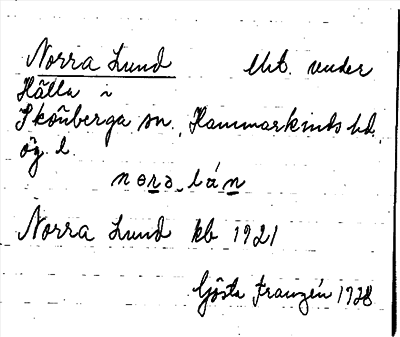 Norra Lund Utt. under
Hälla i
Skönberga sn, Hammarkinds hd,
ög. l.
nɷra lán
Norra Lund kb 1921
Gösta Franzén 1928